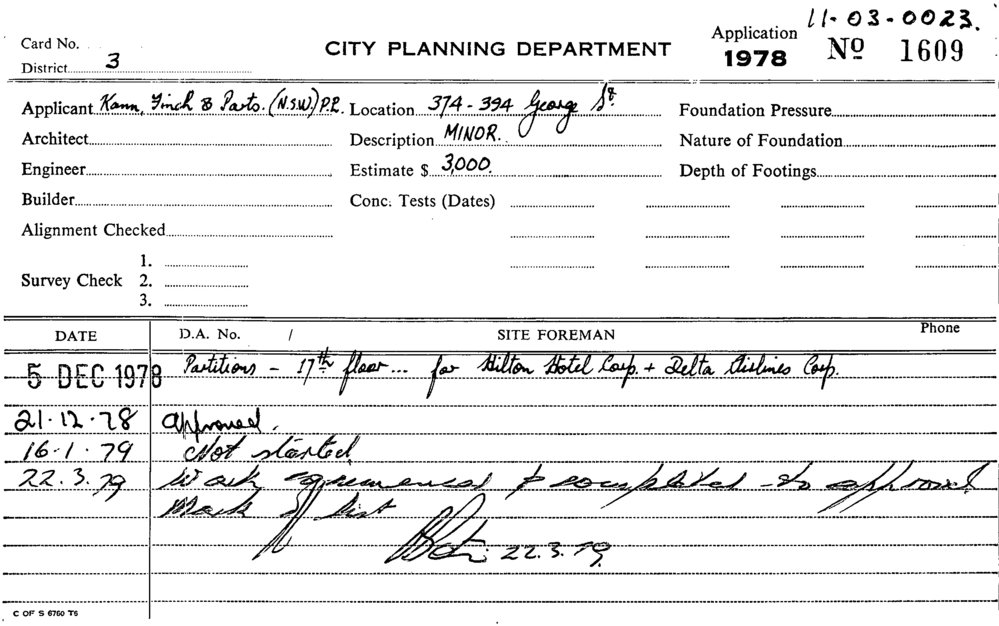 11-03-0023.
Card No.
CITY PLANNING DEPARTMENT
Application
1978 No 1609
District 3
Applicant Kann, Finch & Parts. (N.S.W.) P.L. Location 374-394 George St. Foundation Pressure
Architect Description MINOR. Nature of Foundation
Engineer Estimate $ 3,000. Depth of Footings
Builder Conc. Tests (Dates)
Alignment Checked
1.
Survey Check 2.
3.
DATE D.A. No. / SITE FOREMAN Phone
5 DEC 1978 Partitions - 17th floor... for Hilton Hotel Corp. + Delta Airlines Corp.
21.12.78 Approved.
16.1.79 Not started
22.3.79 Work commenced & completed to approval
Mark off list
22.3.79.
C OF S 6760 T6